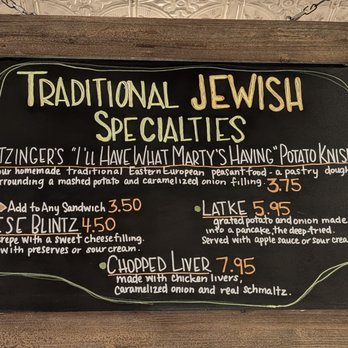 TRADITIONAL JEWISH
SPECIALTIES
TZINGER'S "I'LL HAVE WHAT MARTY'S HAVING" POTATO KNISH
our homemade traditional Eastern European peasant food - a pastry dough
surrounding a mashed potato and caramelized onion filling. 3.75
Add to Any Sandwich 3.50
ESE BLINTZ 4.50
crepe with a sweet cheese filling.
with preserves or sour cream.
LATKE 5.95
grated potato and onion made
into a pancake, the deep-fried.
Served with apple sauce or sour cream
CHOPPED LIVER 7.95
made with chicken livers,
caramelized onion and real schmaltz.